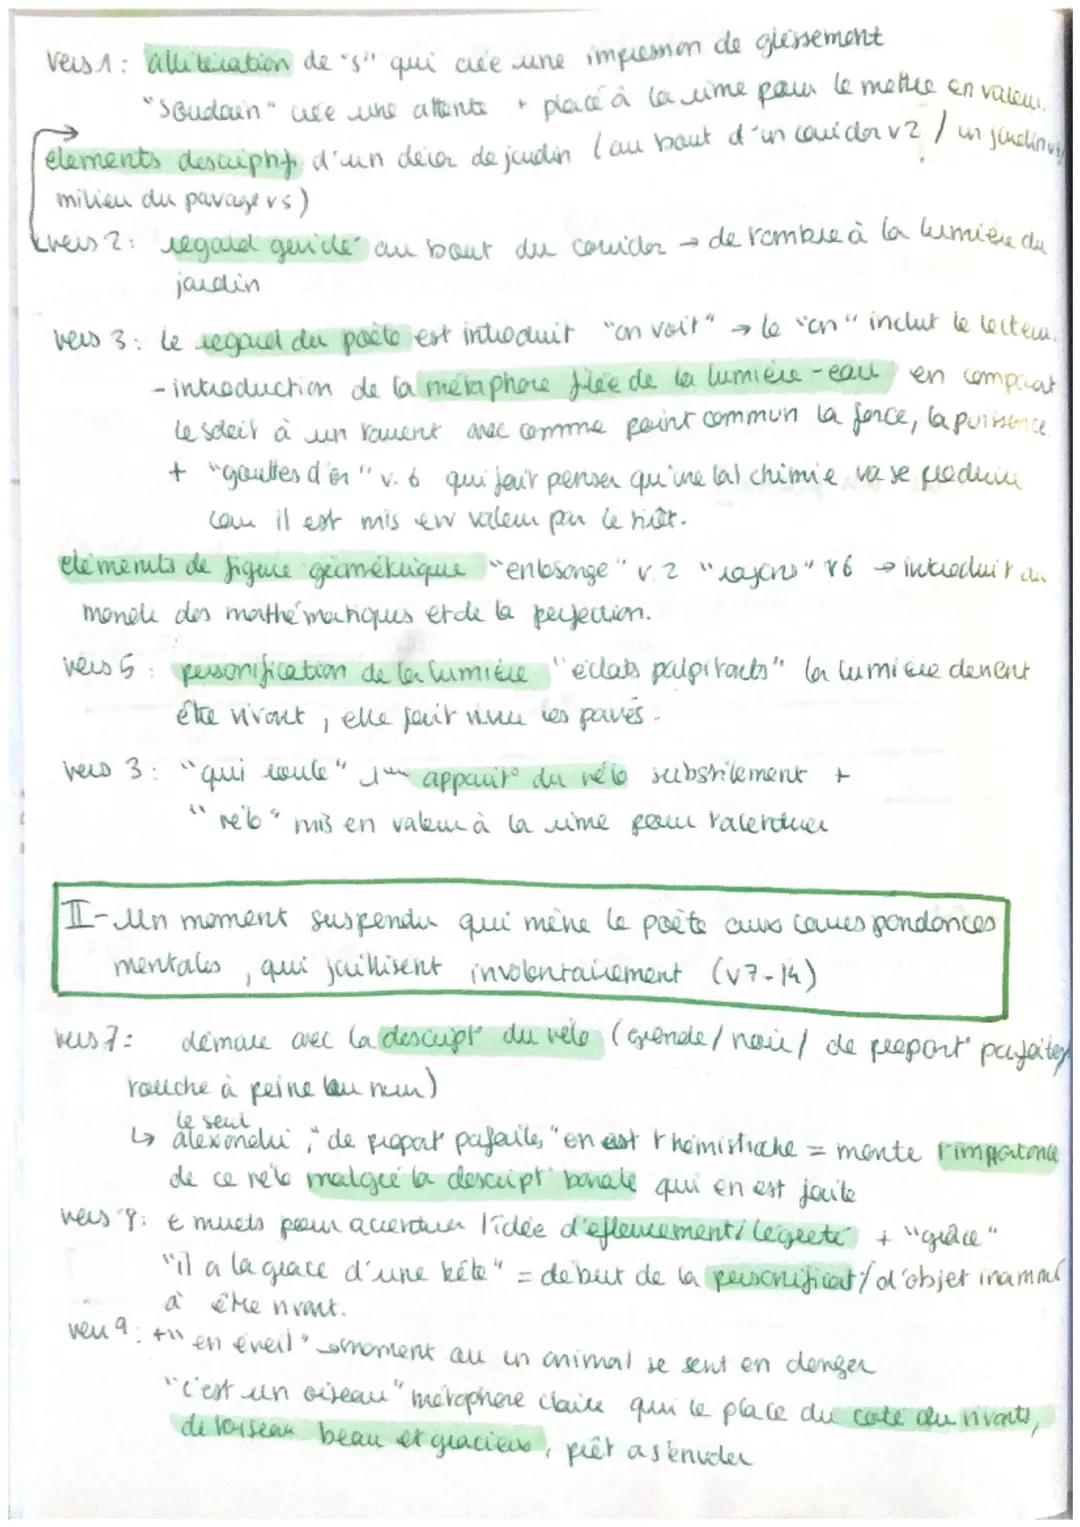 vers 1 : allitération de "s" qui crée une impression de glissement
"Soudain" crée une attente + placé à la rime pour le mettre en valeur.
élements descriptifs d'un décor de jardin (au bout d'un couidor v2 / un jardin
milieu du pavage v5)
vers 2 : regard guidé au bout du couidor → de l'ombre à la lumière du
jardin
vers 3 : le regard du poète est introduit "on voit" → le "on" inclut le lecteur.
- introduction de la métaphore filée de la lumière - eau en comparant
le soleil à un torrent avec comme point commun la force, la puissance
+ "gouttes d'or" v. 6 qui fait penser qu'une (al)chimie va se produire
car il est mis en valeur par le
éléments de figure géométrique "en losange" v. 2 "rayons" v6 → introduit au
monde des mathématiques et de la perfection.
vers 5 : personnification de la lumière "éclats palpitants" la lumière devient
être vivant, elle fait vivre les pavés.
vers 3 : "qui roule" 1ère apparit° du vélo subtilement +
"vélo" mis en valeur à la rime pour l'accentuer
II - Un moment suspendu qui mène le poète aux correspondances
mentales, qui jaillisent involontairement (v7-14)
vers 7 : démare avec la descript° du vélo (grande / noir / de proport° parfaites
touche à peine au mur)
le seul
↳ alexandri, "de proport° parfaites," en est 1 hémistiche = montre l'importance
de ce vélo malgré la descript° banale qui en est faite
vers 8 : e muets pour accentuer l'idée d'effleurement / légereté + "grâce"
"il a la grace d'une bête" = début de la personnificat° / d'objet inanimé
à être vivant.
vers 9 : + "en éveil" → moment où un animal se sent en danger
"c'est un oiseau" métaphore claire qui le place du coté des vivants,
de l'oiseau beau et gracieux, prêt a s'envoler